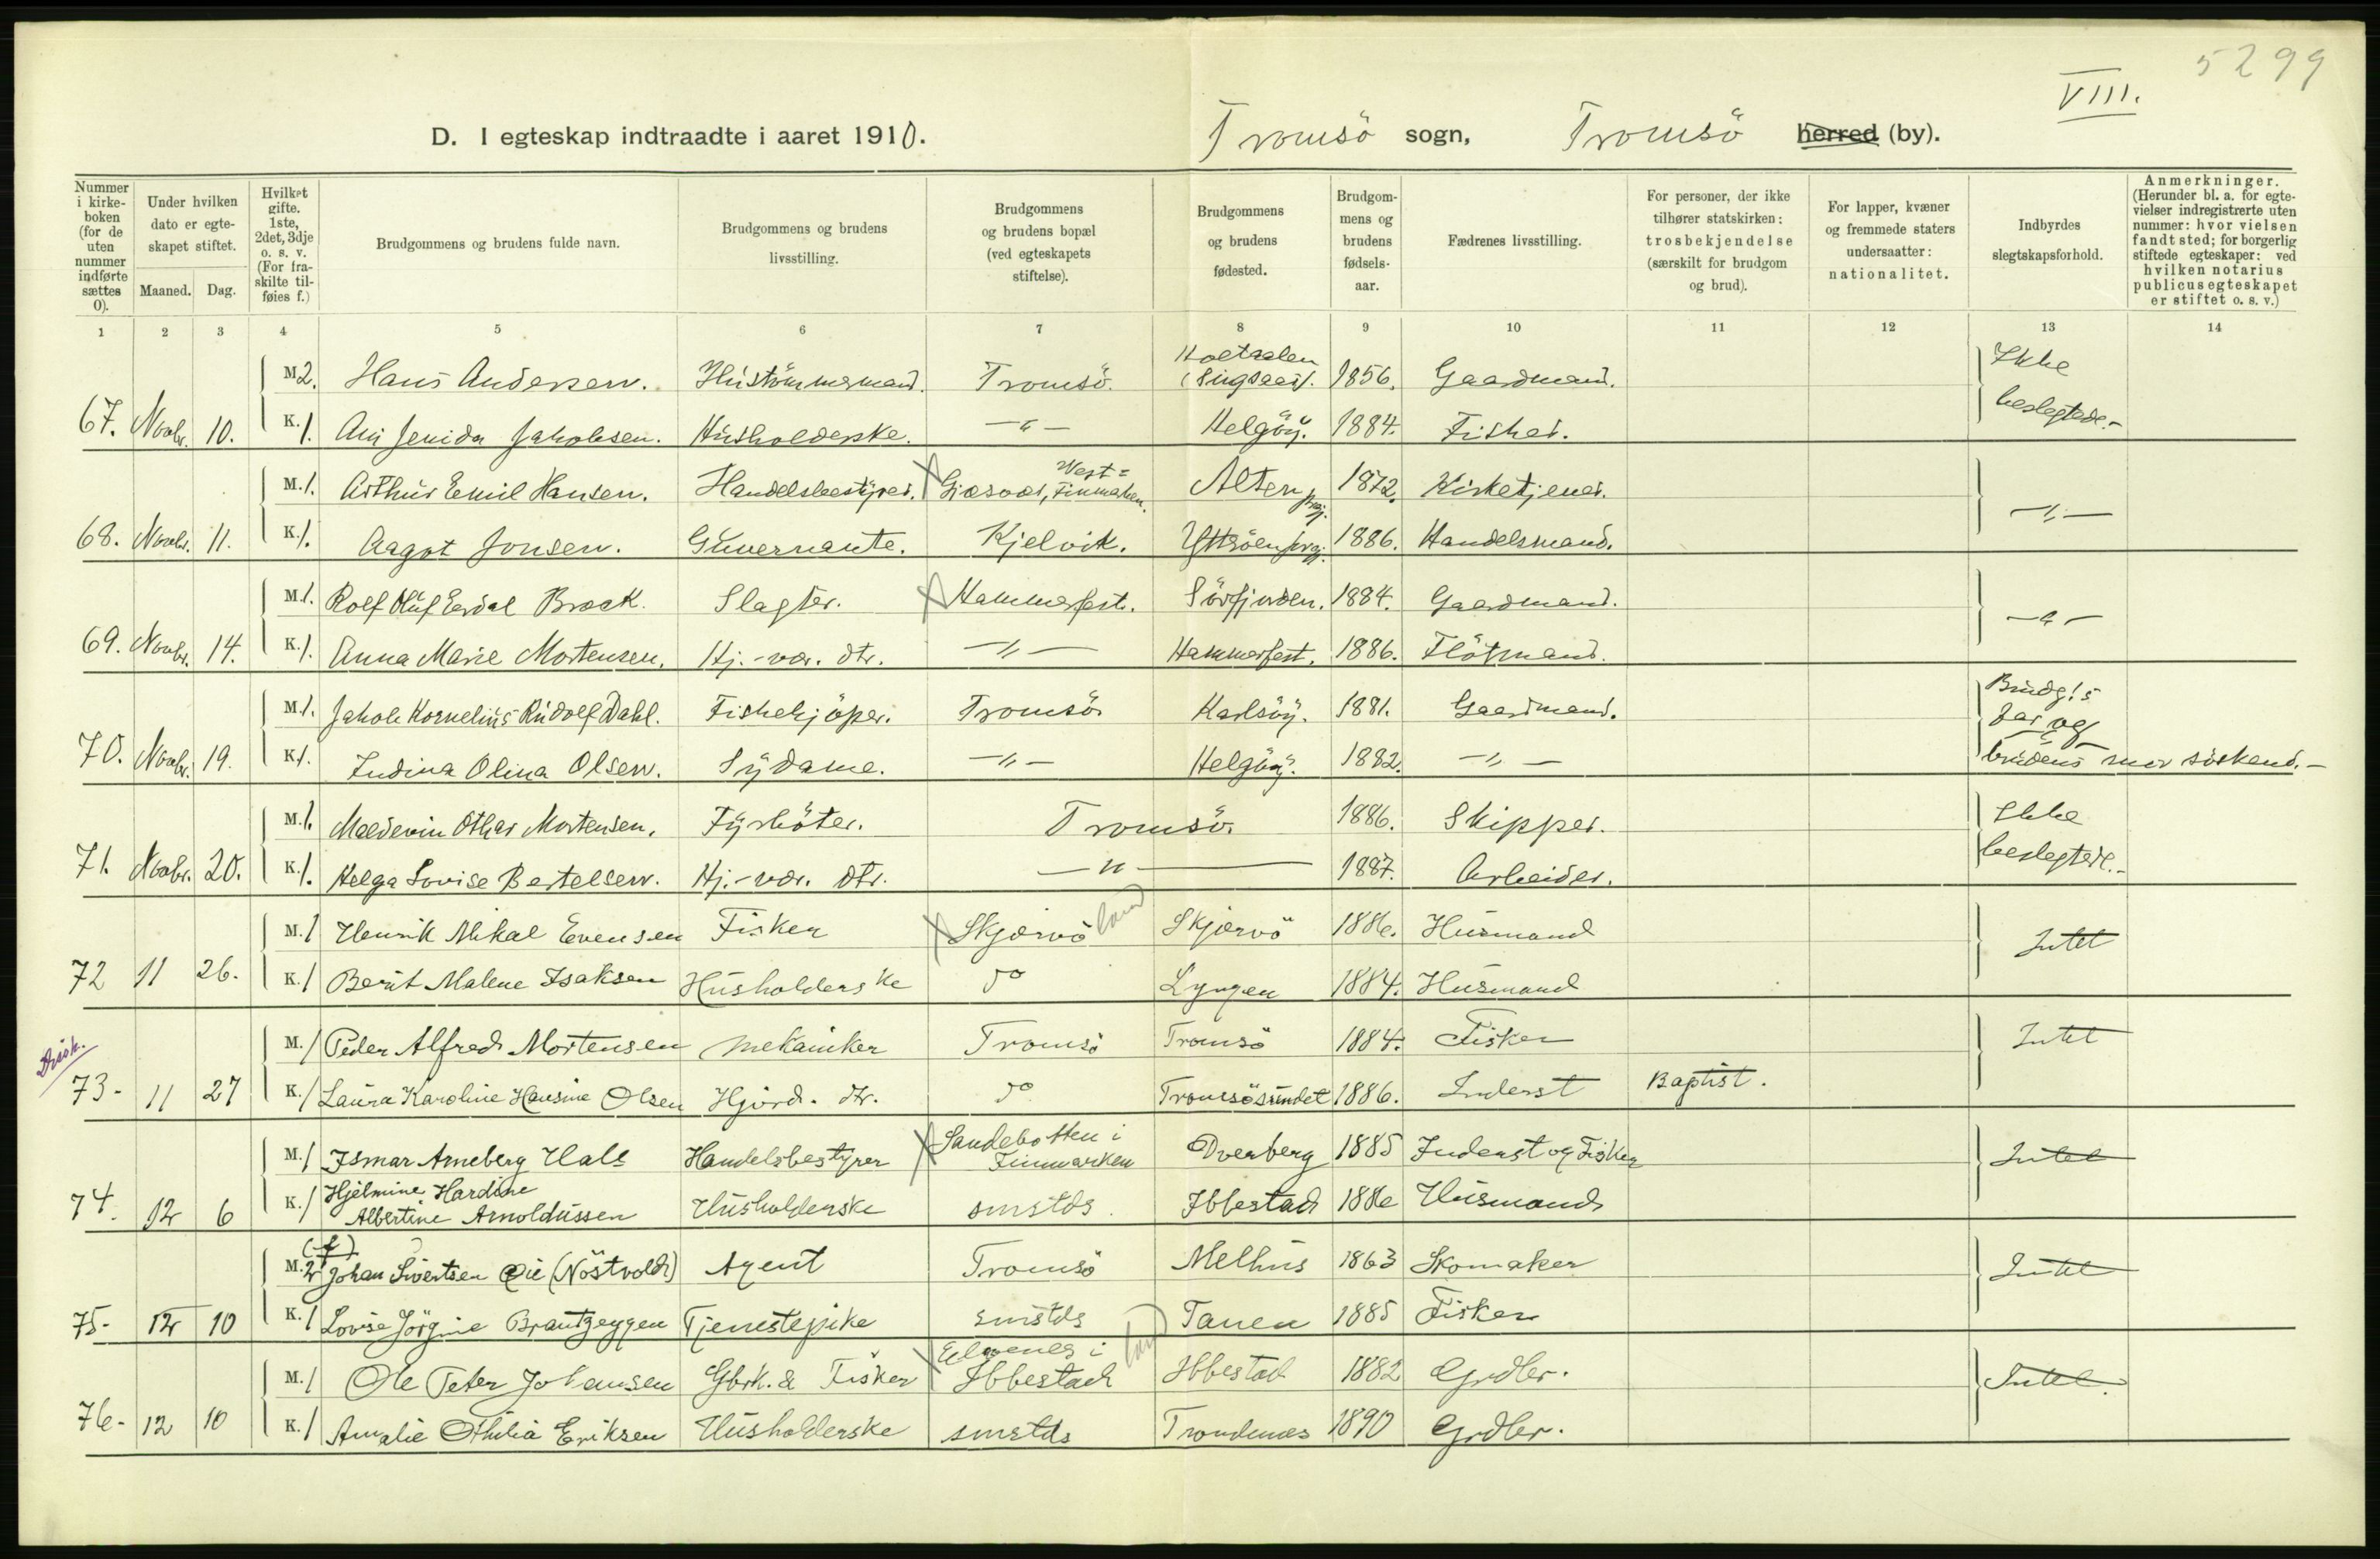 5299
VIII.
D. I egteskap indtraadte i aaret 1910. Tromsö sogn, Tromsö herred (by).
Nummer i kirkeboken (for de uten nummer indførte sættes 0).
Under hvilken dato er egteskapet stiftet.
Maaned. Dag.
Hvilket gifte. 1ste, 2det, 3dje o. s. v. (For fraskilte tilføies f.)
Brudgommens og brudens fulde navn.
Brudgommens og brudens livsstilling.
Brudgommens og brudens bopæl (ved egteskapets stiftelse).
Brudgommens og brudens fødested.
Brudgommens og brudens fødselsaar.
Fædrenes livsstilling.
For personer, der ikke tilhører statskirken: trosbekjendelse (særskilt for brudgom og brud).
For lapper, kvæner og fremmede staters undersaatter: nationalitet.
Indbyrdes slegtskapsforhold.
Anmerkninger. (Herunder bl. a. for egtevielser indregistrerte uten nummer: hvor vielsen fandt sted; for borgerlig stiftede egteskaper: ved hvilken notarius publicus egteskapet er stiftet o. s. v.)
1 2 3 4 5 6 7 8 9 10 11 12 13 14
M. 2. Hans Andersen. Hustömmermand. Tromsö. Holtaalen (Singsaas). 1856. Gaardmand. Ikke
67. Novbr. 10. K. 1. Jakobsen. Husholderske. —"— Helgöy. 1884. Fisker. beslegtede.-
M. 1. Arthur Emil Hansen. Handelsbestyrer. Gjæsvær, Vest=Finmarken. Alten prgj. 1872. Kirketjener.
68. Novbr. 11. K. 1. Aagot Jonsen. Guvernante. Kjelvik. prgj. 1886. Handelsmand. —"—
M. 1. Rolf Oluf Brock. Slagter. Hammerfest. Sörfjorden. 1884. Gaardmand.
69. Novbr. 14. K. 1. Anna Marie Mortensen. Hj.-vær. dtr. —"— Hammerfest. 1886. Flötmand. —"—
M. 1. Jakob Kornelius Rudolf Dahl. Fiskekjöper. Tromsö. Karlsöy. 1881. Gaardmand. Brudg!s far og
70. Novbr. 19. K. 1. Indina Olina Olsen. Sydame. —"— Helgöy. 1882. —"— brudens mor söskend.-
M. 1. Maldevin Othar Mortensen. Fyrböter. Tromsö. 1886. Skipper. Ikke
71. Novbr. 20. K. 1. Helga Lovise Bertelsen. Hj.-vær. dtr. —"— 1887. Arbeider. beslegtede.-
M. 1 Henrik Mikal Evensen Fisker Skjærvö land Skjærvö 1886. Husmand Intet
72 11 26. K. 1 Berit Malene Isaksen Husholderske do Lyngen 1884. Husmand
M. 1 Peder Alfred Mortensen Mekaniker Tromsö Tromsö 1884. Fisker Intet
73- 11 27 K. 1 Laura Karoline Hansine Olsen Hjvrd. dtr. do Tromsösundet 1886. Inderst Baptist.
M. 1 Ismar Arneberg Hals Handelsbestyrer Sandebotten i Finmarken Dverberg 1885 Inderst og Fisker Intet
74. 12 6 K. 1 Hjelmine Hardine Albertine Arnoldussen Husholderske smstds. Ibbestad 1886 Husmand
M. 2 (f) Johan Sivertsen Öie (Nöstvold) Agent Tromsö Melhus 1863 Skomaker Intet
75- 12 10 K. 1 Lovise Jörgine Brantzeggen Tjenestepike smstds Tanen 1885 Fisker
M. 1 Ole Peter Johansen Gbrk. & Fisker Elvenes i Ibbestad land Ibbestad 1882 Grdbr. Intet.
76- 12 10 K. 1 Amalie Othilia Eriksen Husholderske smstds Trondenæs 1890 Grdbr.